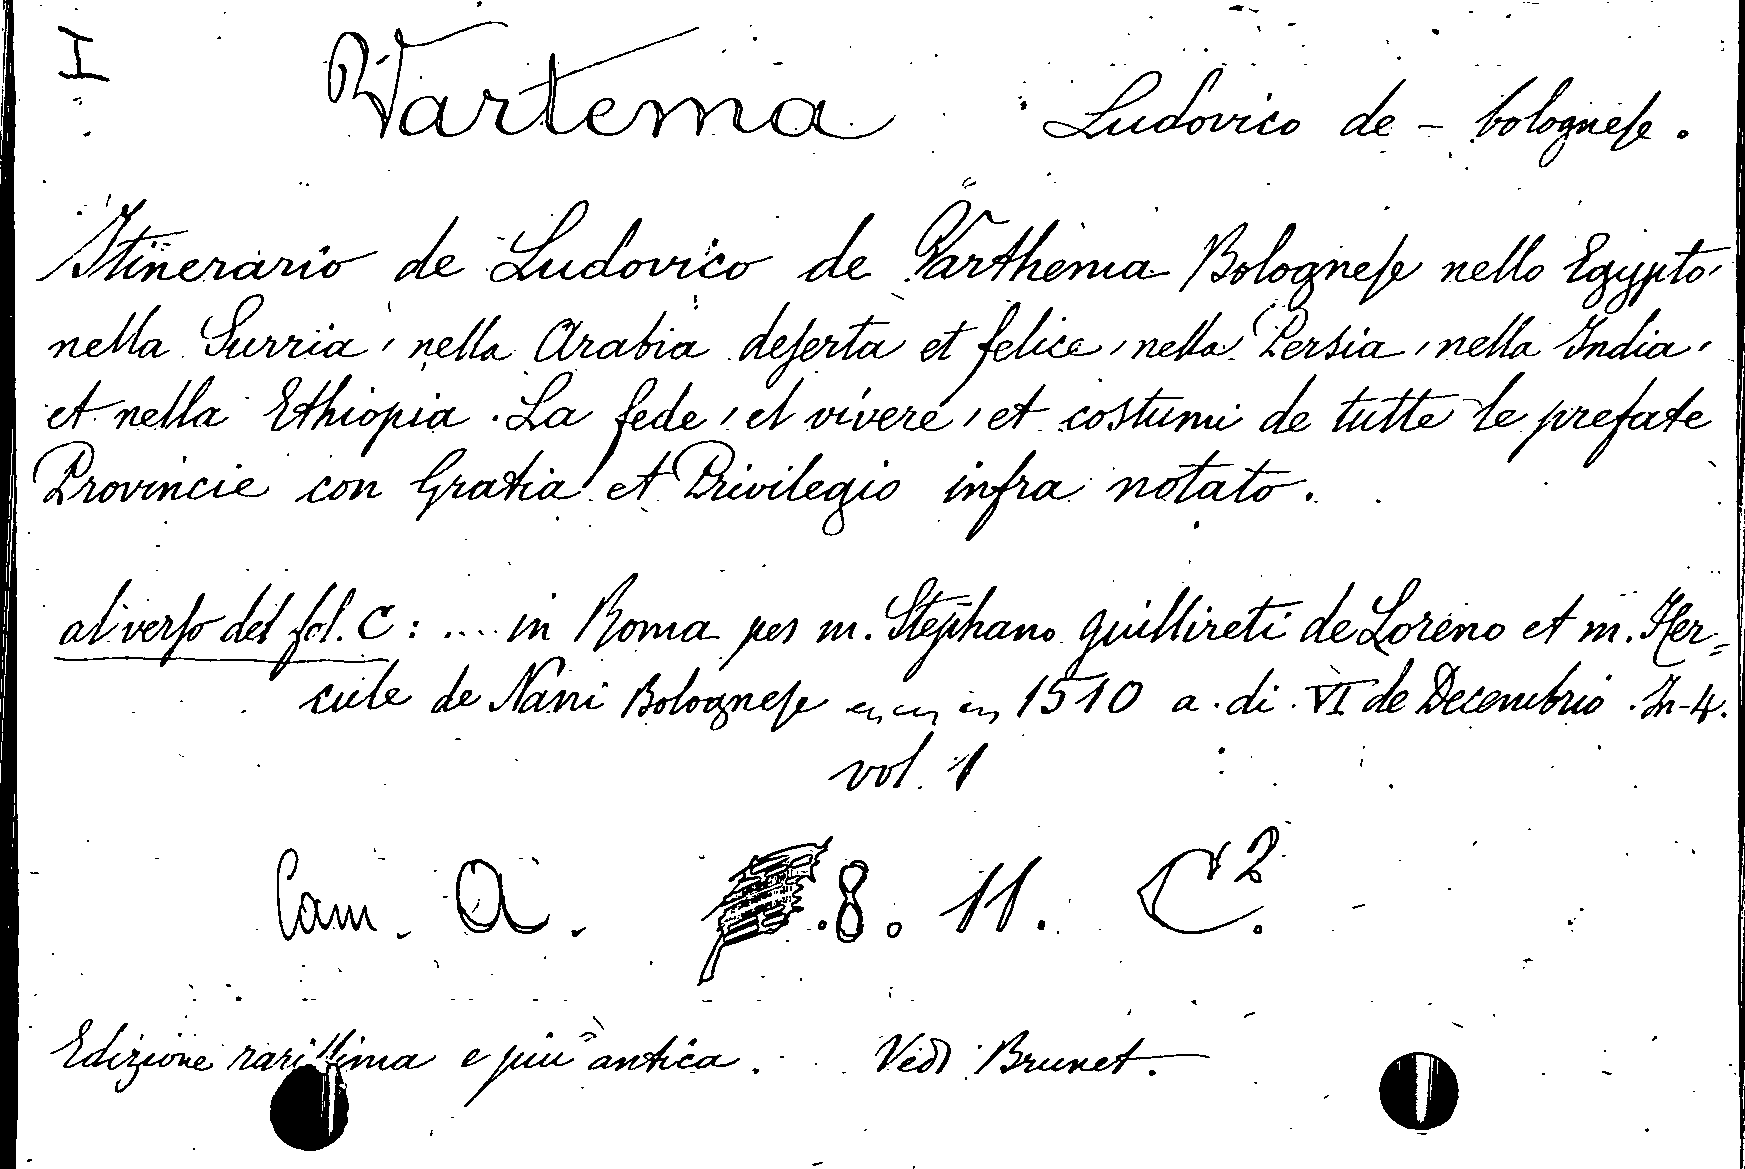 I
Vartema Ludovico de - bolognese.
Itinerario de Ludovico de Varthema Bolognese nello Egypto,
nella Surria, nella Arabia deserta et felice, nella Persia, nella India,
et nella Ethiopia. La fede, el vivere, et costumi de tutte le prefate
Provincie con Gratia et Privilegio infra notato.
al verso del fol. C: .... in Roma per m. Stephano guillireti de Loreno et m. Her=
cule de Nani Bolognese 1510 a. di. VI de Decembrio. In-4.
vol. 1
Cam. A. .8. 11. C2.
Edizione rarissima e più antica. Vedi Brunet.